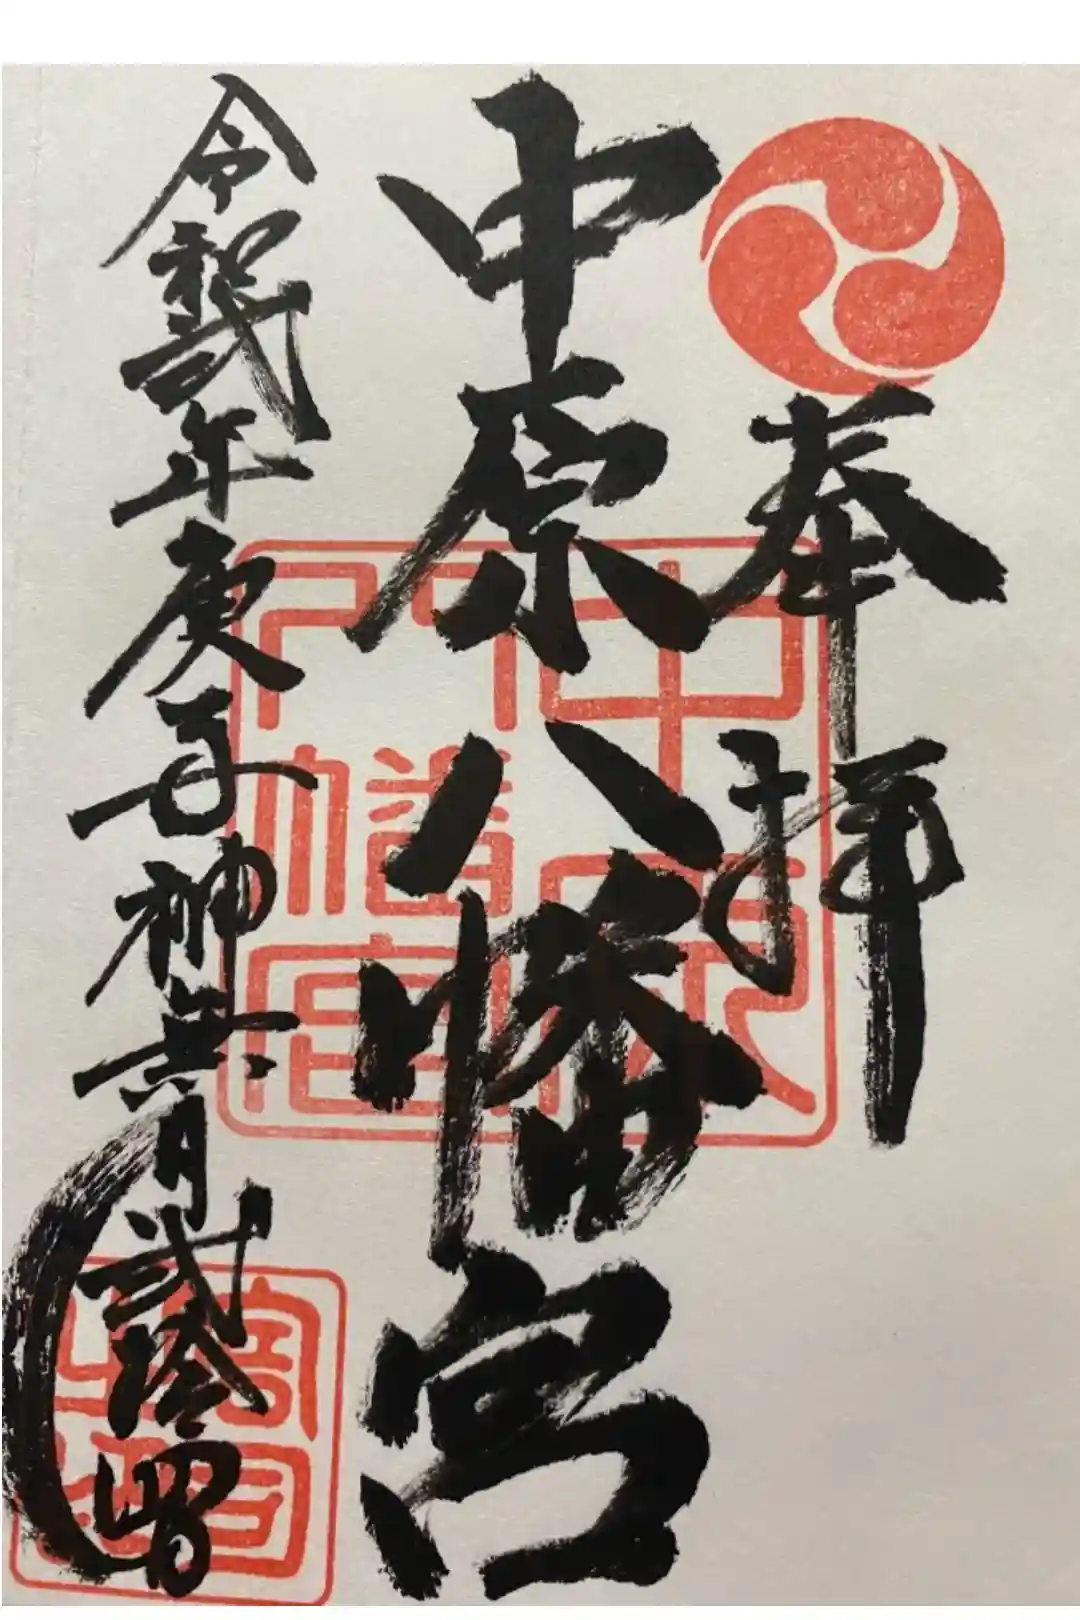 奉拝
中原八幡宮
令和弐年庚子神無月弐拾
中原八幡宮
宮司